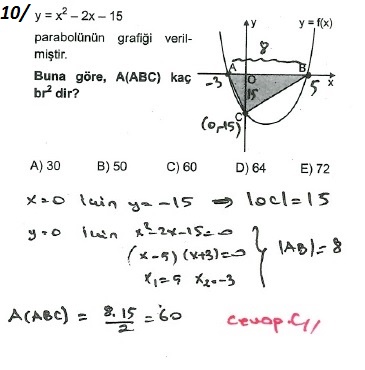 10/ y = x² – 2x – 15
parabolünün grafiği veril-
miştir.
Buna göre, A(ABC) kaç
br² dir?
y y = f(x)
8
A B
-3 O 5 x
15
C
(0,-15)
A) 30 B) 50 C) 60 D) 64 E) 72
x=0 için y=-15 ⇒ |OC|=15
y=0 için x²-2x-15=0
(x-5)(x+3)=0 } |AB|=8
x₁=5 x₂=-3
A(ABC) = 8.15/2 = 60 Cevap-C//